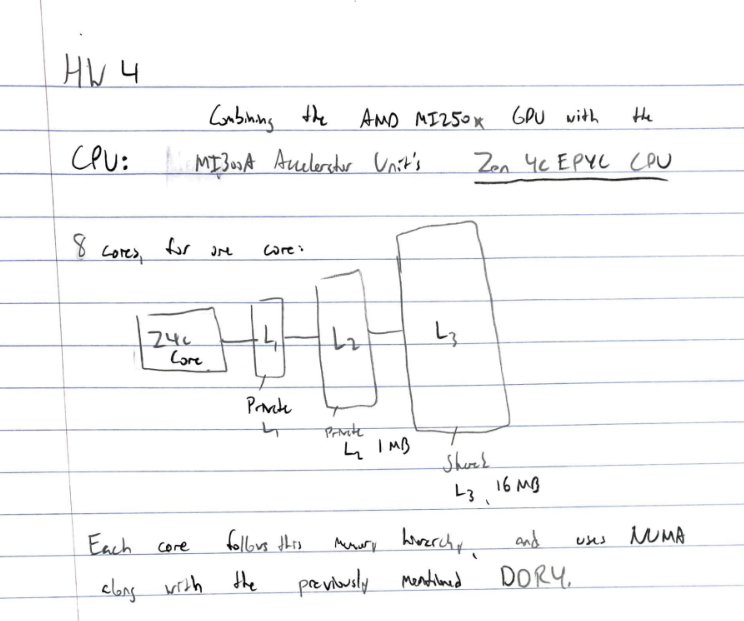 HW 4
Combining the AMD MI250x GPU with the
CPU: MI300A Accelerator Unit's Zen 4c EPYC CPU
8 cores, for one core:
Z4c
Core
L1
L2
L3
Private
L1
Private
L2 1 MB
Shared
L3, 16 MB
Each core follows this memory hierarchy, and uses NUMA
along with the previously mentioned DORY.